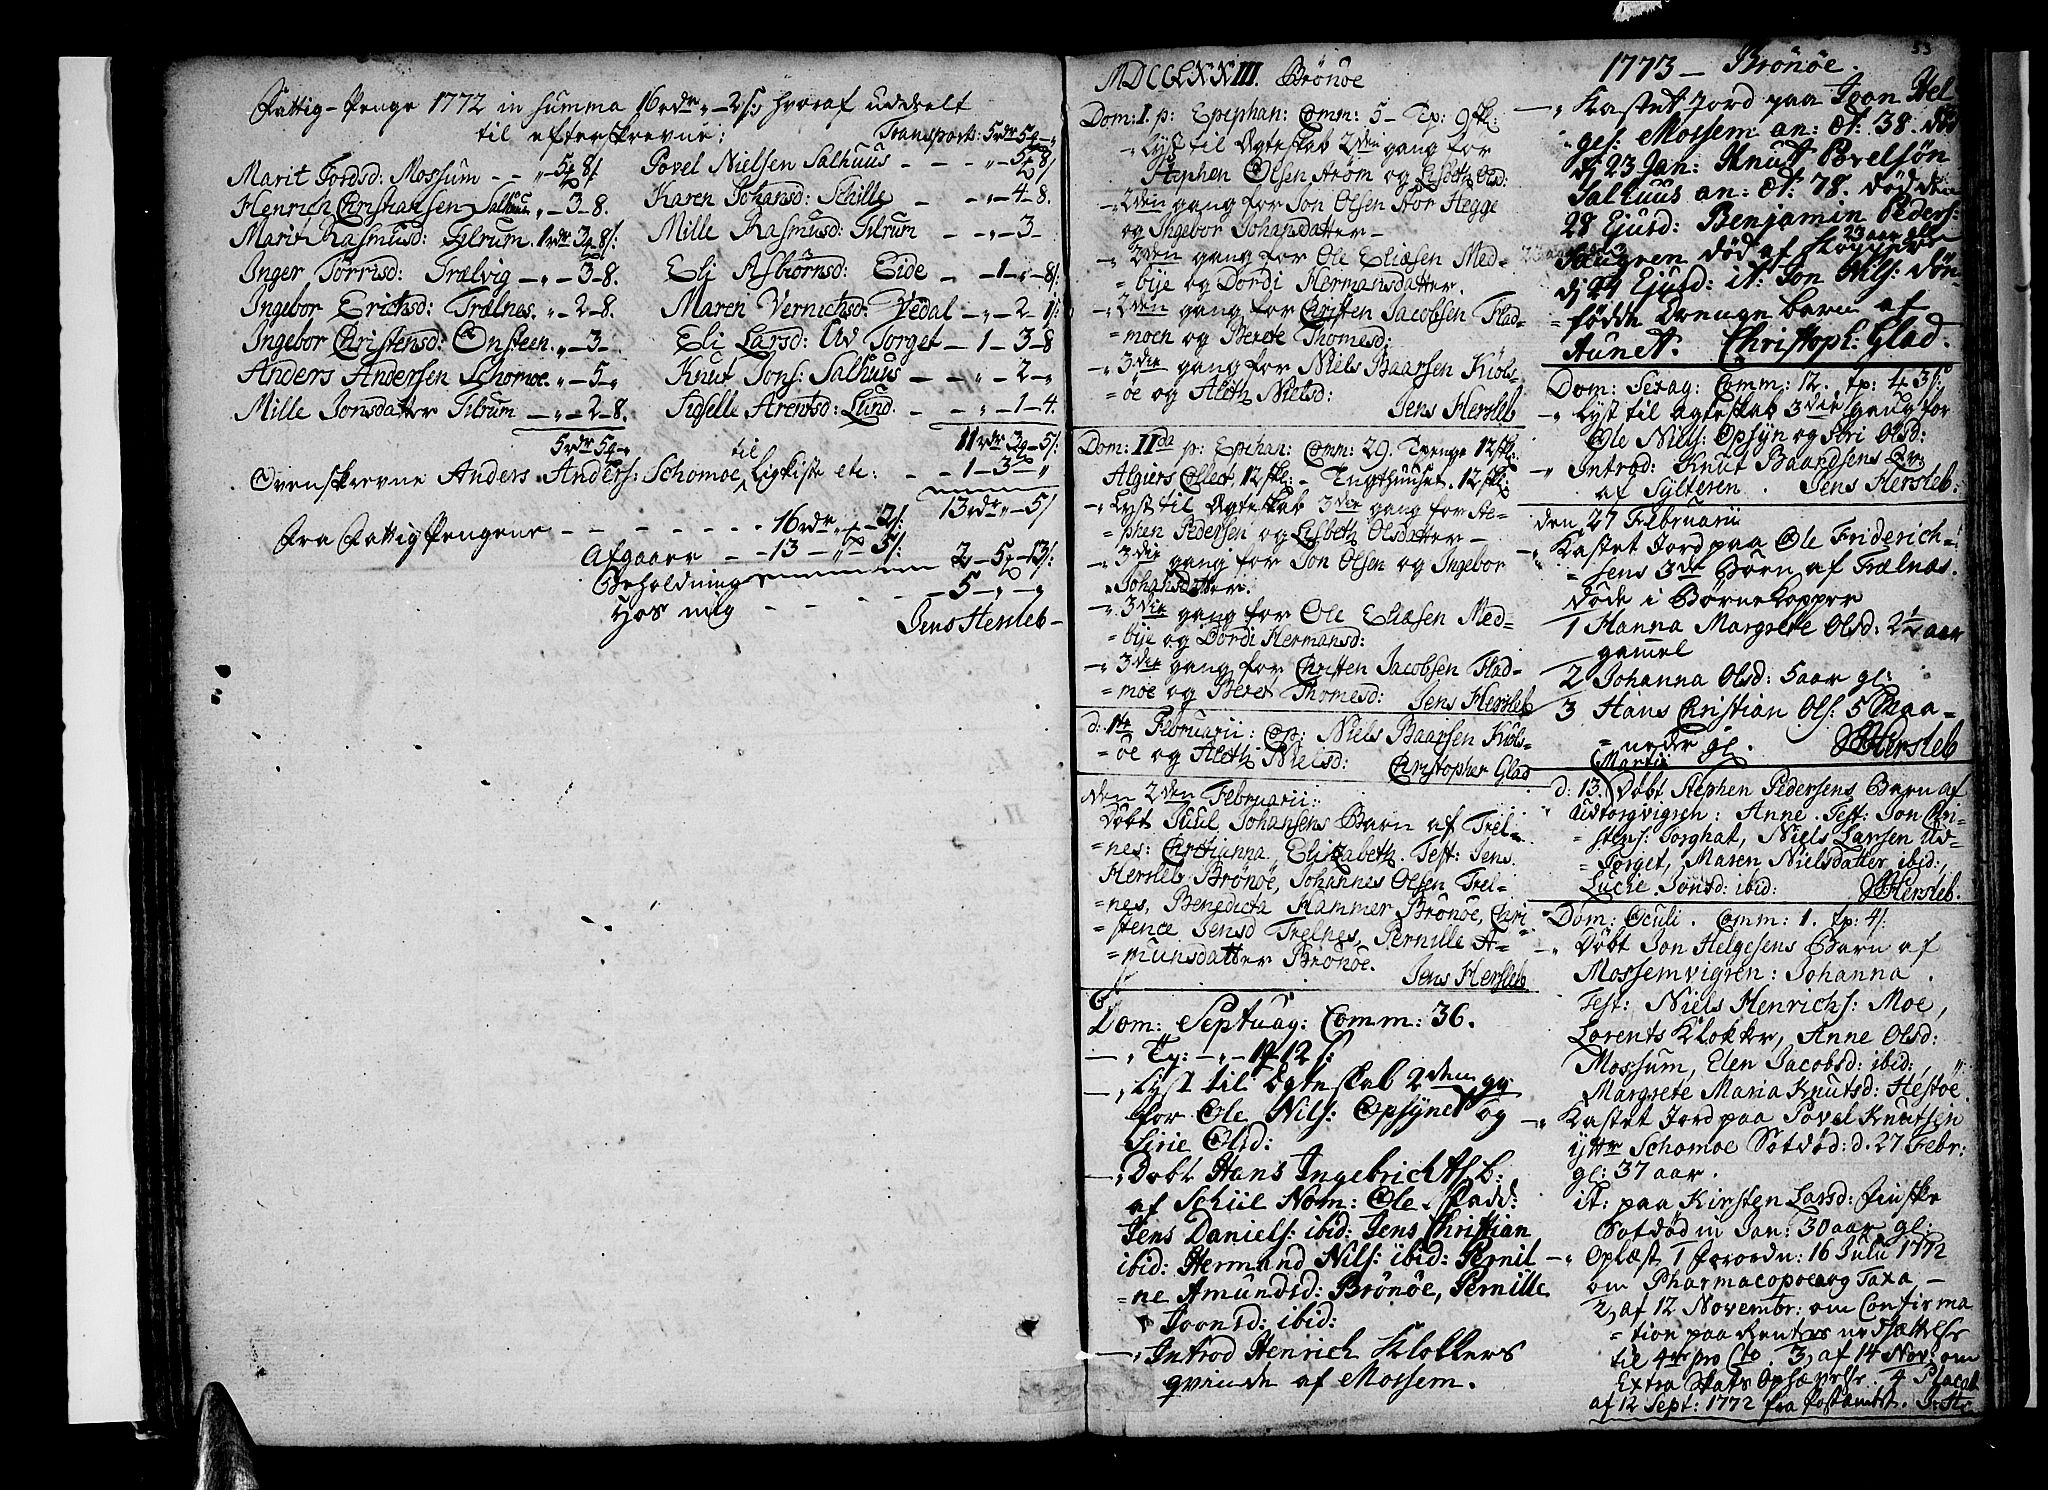 Fattig-Penge 1772 in summa 16 rdr „ - 2 s: hvoraf uddelt
til efterskrevne:
Marit Tordsd: Mossum - - „ - 5 - 8/
Henrich Christiansen Salhuus „ - 3 - 8.
Marit Rasmusd: Tilrum. 1 rdr 3 - 8/:
Inger Torrisd: Trælvig - „ - 3 - 8.
Ingebor Erichsd: Trælnes. „ - 2 - 8.
Ingebor Christensd: Onsteen „ - 3 -
Anders Andersen Schomoe „ - 5 - „
Mille Jonsdatter Tilrum - „ - 2 - 8.
5 rdr 5 - „
Transport: 5 rdr 5 - „
Povel Nielsen Salhuus - - - „ - 5 - 8/
Karen Johansd: Schille - - „ - 4 - 8.
Mille Rasmusd: Tilrum - - „ - 3 -
Eli Asbiørnsd: Eide - - 1 - „ - 8/:
Maren Vernichsd: Vedal - „ - 2 -
Eli Larsd: Ud Torget - 1 - 3 - 8
Knut Jons: Salhuus - - „ - 2 - „
Sidselle Arentsd: Lund. - - „ - 1 - 4.
11 rdr 3 - 5/:
Ovenskrevne Anders Anders: Schomoe til Ligkiste etc: - - 1 - 3 „
13 rdr „ - 5/
Fra Fattig Pengene - - - - - - - 16 rdr „ - 2/:
Afgaaer - - 13 - „ - 5/:
Beholdning 2 - 5 - 13/:
Hos mig - - - - - 5 - „ - „
Jens Hersleb -
MDCCLXXIII. Brönöe
Dom: I. p: Epiphan: Comm: 5 - Tp: 9 sk:
- „ Lyst til Egteskab 2den gang for
Stephen Olsen Arøm og Lisbeth Olsd:
- „ 2den gang for Jon Olsen Stor Hegge
og Ingebor Johansdatter -
- „ 2den gang for Ole Eliæsen Med-
= bye og Dordi Hermansdatter.
- „ 2den gang for Christen Jacobsen Flad-
= moen og Berete Thomesd:
- „ 3die gang for Niels Baarsen Kiøls-
= øe og Aleth Nielsd:
Jens Hersleb
Dom: IIda p: Epiphan: Comm: 29. Tpenge 12 sk:
Algiers Collect 12 sk: - Tugthuuset. 12 sk:
- „ Lyst til Egteskab 3die gang for Ste-
phen Pedersen og Lisbeth Olsdatter -
- „ 3die gang for Jon Olsen og Ingebor
Johansdatter.
- „ 3die gang for Ole Eliæsen Med-
= bye og Dordi Hermansd:
- „ 3die gang for Christen Jacobsen Flad-
= moe og Beret Thomesd: Jens Hersleb
d: 1ste Februarii: Cop: Niels Baarsen Kiøls-
= øe og Aleth Nielsd: Christopher Glad
den 2den Februarii:
Døbt Juul Johansens Barn af Trel-
= nes: Christianna Elisabeth. Test: Jens
Hersleb Brönöe, Johannes Olsen Trel-
= nes, Benedicta Hammer Brönöe, Chri
= stence Jensd Trelnes, Pernille A-
= munsdatter Brönöe.
Jens Hersleb
Dom: Septuag: Comm: 36.
- „ Tp: - „ - 12 s:
- „ Lyst til Egteskab 2den gg
for Ole Nils: Opsynet og
Sirie Olsd:
- „ Døbt Hans Ingebrichts B:
af Schiil Nom: Ole. fadd:
Jens Daniels: ibid: Jens Christian
ibid: Hermand Nils: ibid: Pernil
= ne Amundsd: Brönöe, Pernille
Joonsd: ibid:
- „ Introd Henrich Klokkers
qvinde af Mossem.
53
1773 - Brönöe.
- „ Kastet Jord paa Joon Hel-
ges: Mossem an: æt: 38. død
d 23 Jan: Knut Povelsøn
Salhuus an: æt: 78. død den
28 Ejusd: Benjamin Peders:
Haugren død af Kopper
23 aar gl:
d 24 Ejusd: it: Jon Nils: døn-
= fødde Drenge barn af
Aunet. Christoph: Glad.
Dom: Sexag: Comm: 12. tp: 4 3/:
- „ Lyst til Egteskab 3die gang for
Ole Niels: Opsyn og Siri Olsd:
- „ Introd: Knut Baardsens Qv:
af Sylteren. Jens Hersleb:
den 27 Februarii
- „ Kastet Jord paa Ole Friderich-
= sens 3de Børn af Trælnæs.
døde i Børne Kopper
1 Hanna Margrete Olsd: 2 1/2 aar
gamel
2 Johanna Olsd: 5 aar gl:
3 Hans Christian Ols: 5 Maa-
= neder gl. JHersleb
d: 13. Martij Døbt Stephen Pedersens Barn af
Udtorgvigren: Anne. Test: Jon Chri-
= stens: Torghat, Niels Larsen Ud-
= Torget, Maren Nielsdatter ibid:,
Lucie Jonsd: ibid: JHersleb.
Dom: Oculi. Comm: 1. tp: 4/:
- „ Døbt Jon Helgesens Barn af
Mossemvigren: Johanna.
Test: Niels Henrichs: Moe,
Lorents Klokker, Anne Olsd:
Mossum, Elen Jacobsd: ibid:,
Margrete Maria Knutsd: Hestøe.
- „ Kastet Jord paa Povel Knutsen
ytter Schomoe Sotdød: d. 27 Febr:
gl: 37 aar.
it: paa Kirsten Larsd: Finske
Sotdød in Jan: 30 aar gl:
- „ Oplæst 1 forordn: 16 Julii 1772
om Pharmacopoea og Taxa -
2, af 12 Novembr: om Confirma
= tion paa Renters nedsættelse
til 4re pro Cto. 3, af 14 Nov: om
Extra Skatts Ophævelse. 4 Placat
af 12 Sept: 1772 fra Postamtet. J: H: